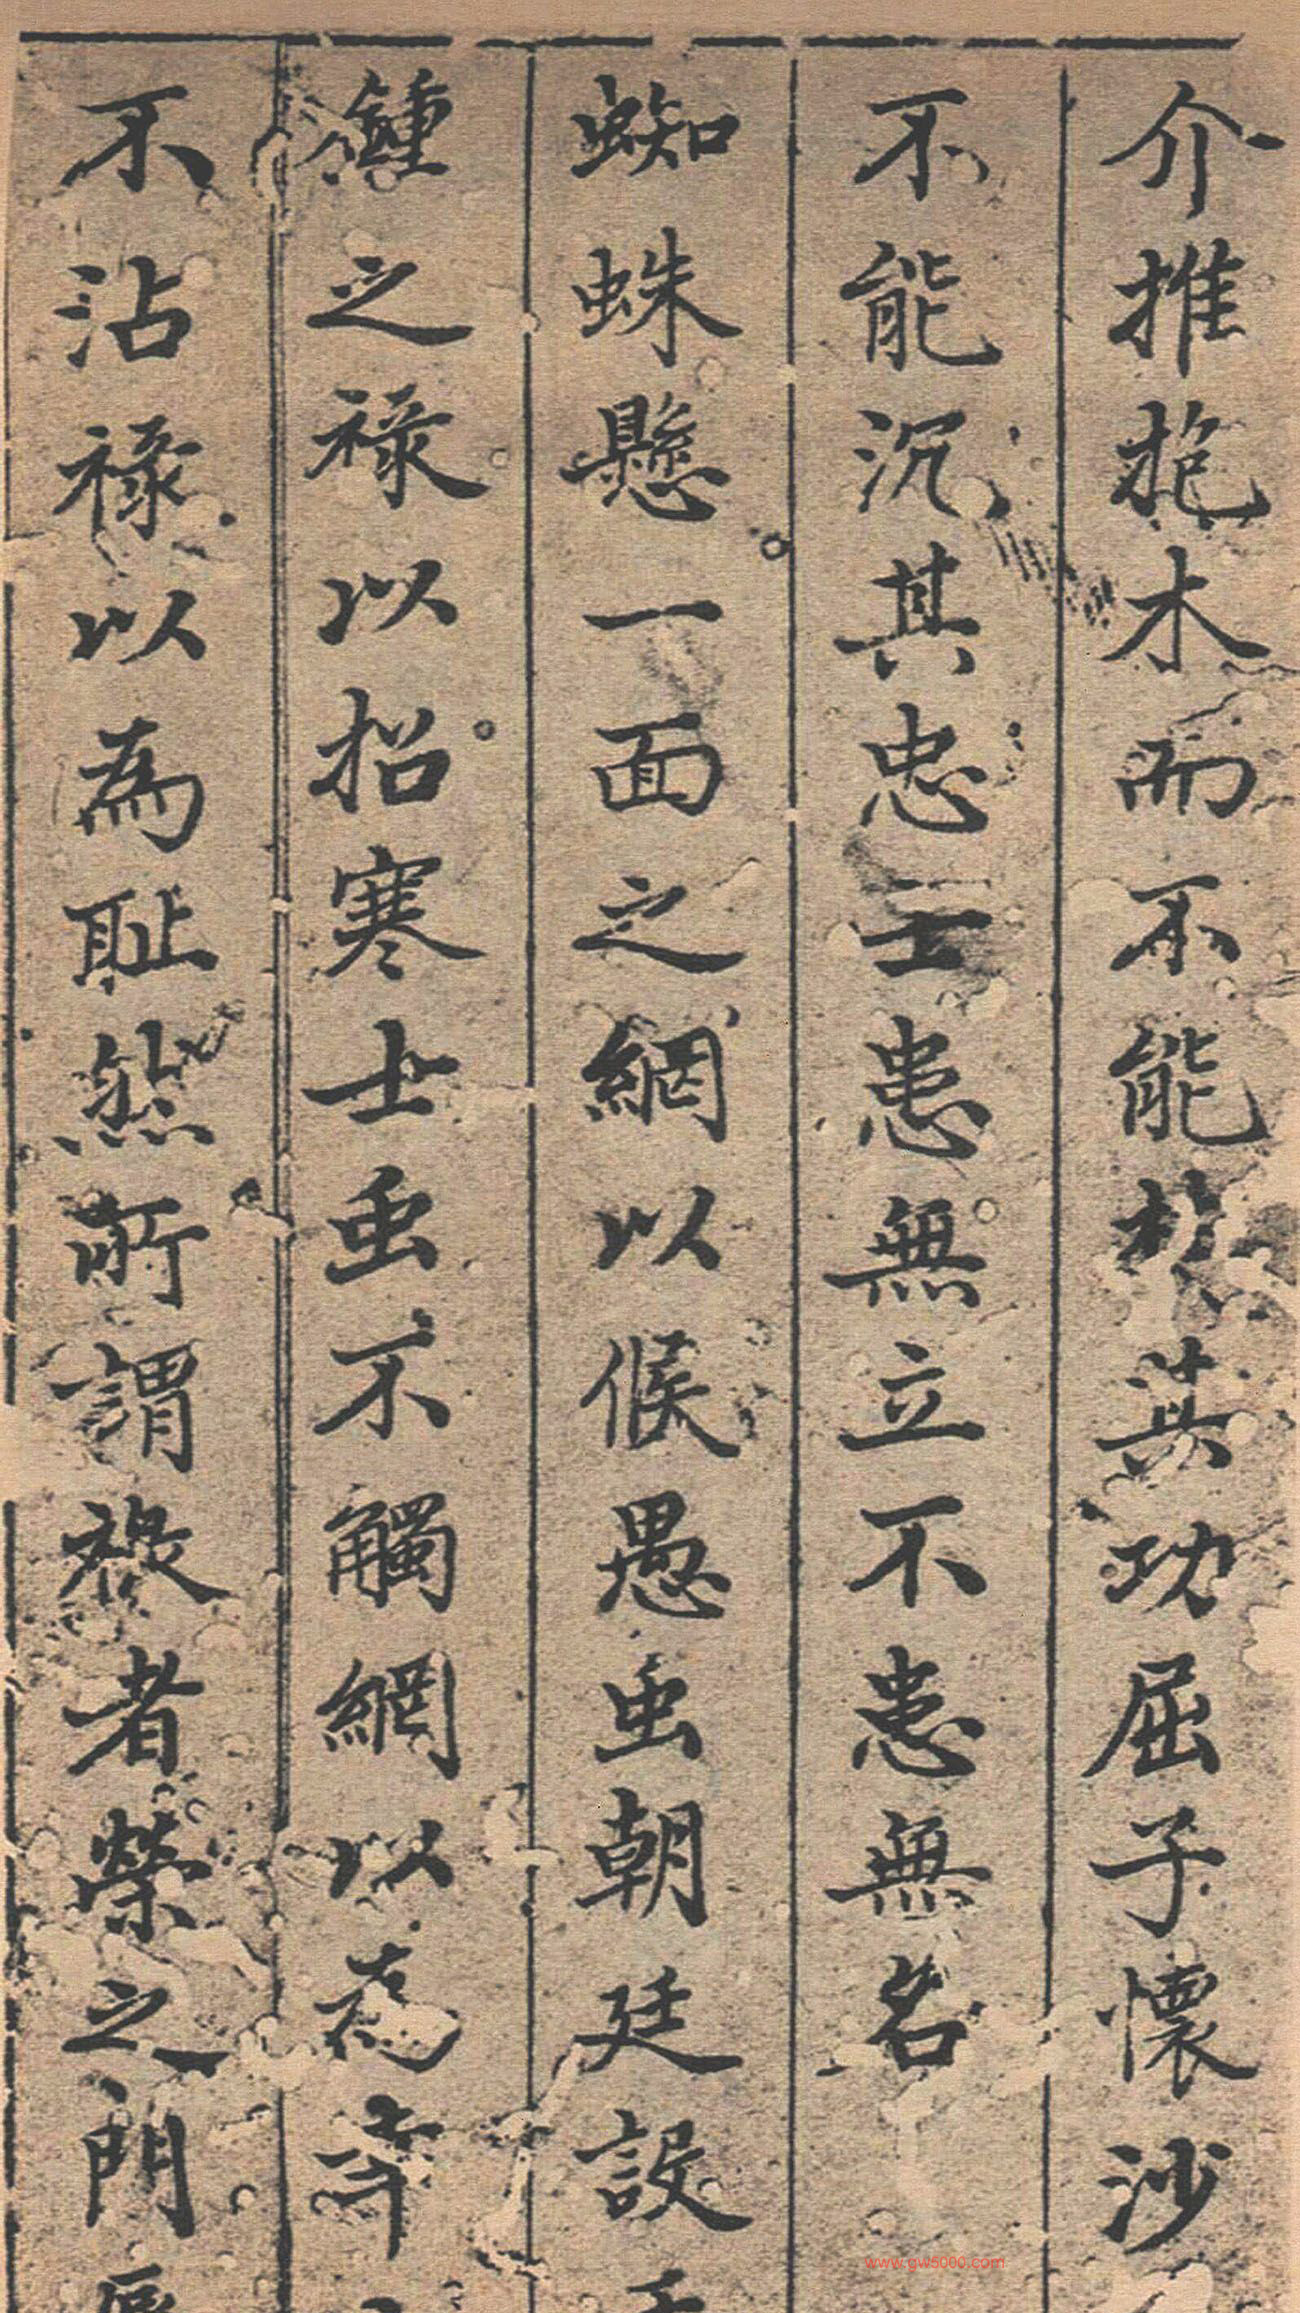 介推抱木而不能於其功屈子懷沙
不能沉其忠士患無立不患無名
蜘蛛懸一面之網以候愚虫朝廷設
鍾之禄以招寒士虫不觸網以為幸
不沾禄以為耻然所謂禄者榮之門
www.gw5000.com